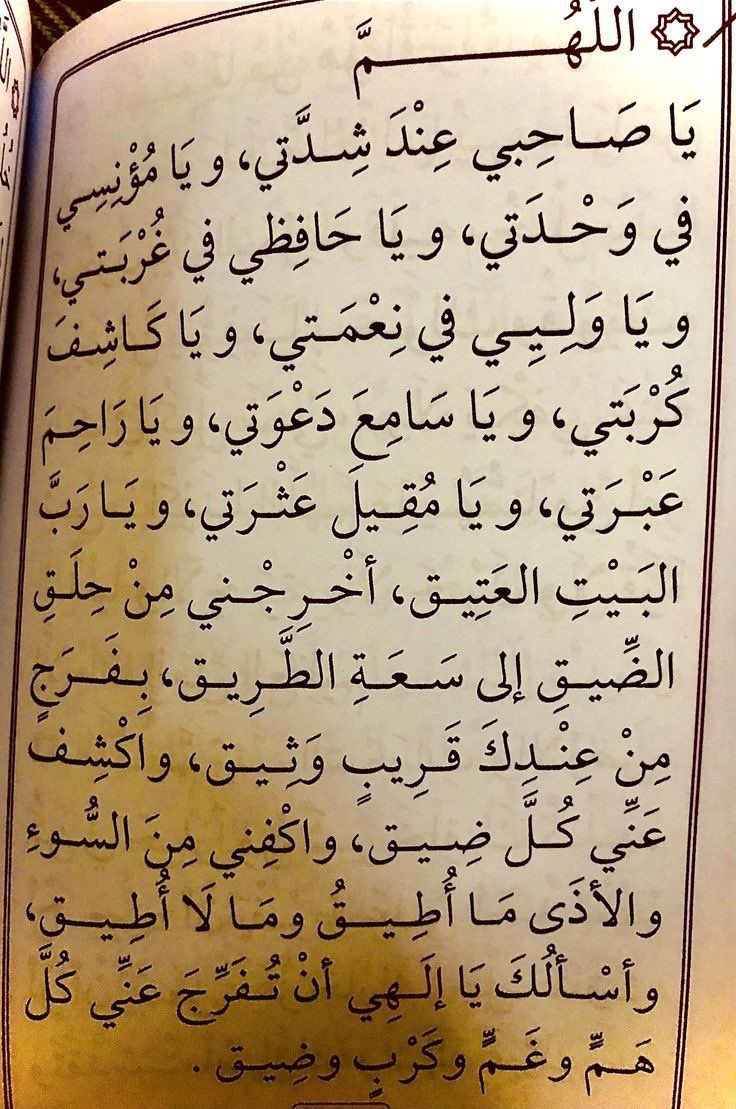 اللَّهُمَّ
يَا صَاحِبي عِنْدَ شِدَّتي، و يَا مُؤْنِسِي
في وَحْدَتي، و يَا حَافِظي في غُرْبَتي،
و يَا وَلِيِي في نِعْمَتي، و يَا كَاشِفَ
كُرْبَتي، و يَا سَامِعَ دَعْوَتي، و يَا رَاحِمَ
عَبْرَتي، و يَا مُقِيلَ عَثْرَتي، و يَا رَبَّ
البَيْتِ العَتِيق، أخْرِجْني مِنْ حِلَقِ
الضِّيقِ إلى سَعَةِ الطَّرِيق، بِفَرَجٍ
مِنْ عِنْدِكَ قَرِيبٍ وَثِيق، واكْشِف
عَنِّي كُلَّ ضِيق، واكْفِني مِنَ السُّوءِ
والأذَى مَا أُطِيقُ ومَا لَا أُطِيق،
وأسْألُكَ يَا إلَهِي أنْ تُفَرِّجَ عَنِّي كُلَّ
هَمٍّ وغَمٍّ وكَرْبٍ وضِيق .